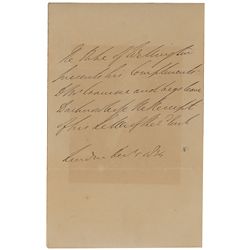 The Duke of Wellington
presents his Compliments
to Mr and begs leave
to acknowledge the Receipt
of his Letter of the Inst
London